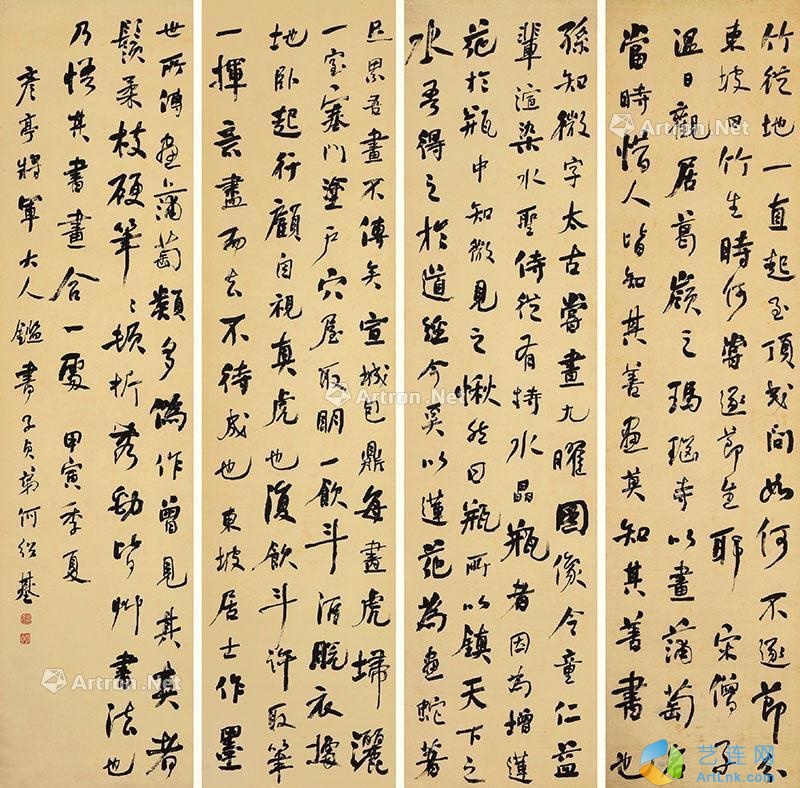 竹從地一直起至頂或問如何不逐節分
東坡曰竹生時何嘗逐節生耶 宋僧子
溫日觀居葛嶺之瑪瑙寺以畫蒲萄名
當時惜人皆知其善畫莫知其善書也
孫知微字太古嘗畫九曜圖像令童仁益
輩渲染水聖侍從有持水晶瓶者因為增蓮
花於瓶中知微見之愀然曰瓶所以鎮天下之
水吾得之於道經今奚以蓮花為畫蛇著
足累吾畫不傳矣宣城包鼎每畫虎埽灑
一室塞門塗戶穴屋取明一飲斗酒脫衣據
地臥起行顧自視真虎也復飲斗許取筆
一揮意盡而去不待成也東坡居士作墨
世所傳畫蒲萄類多偽作曾見其真者
鬚柔枝硬筆筆頓折落勁皆艸書法也
乃悟其書畫合一處 甲寅季夏
彥亭將軍大人鑑書 子貞弟何紹基
Artron.Net
Artron.Net
Artron.Net
Artron.Net
Artron.Net
Artron.Net
艺连网
ArtLnk.com